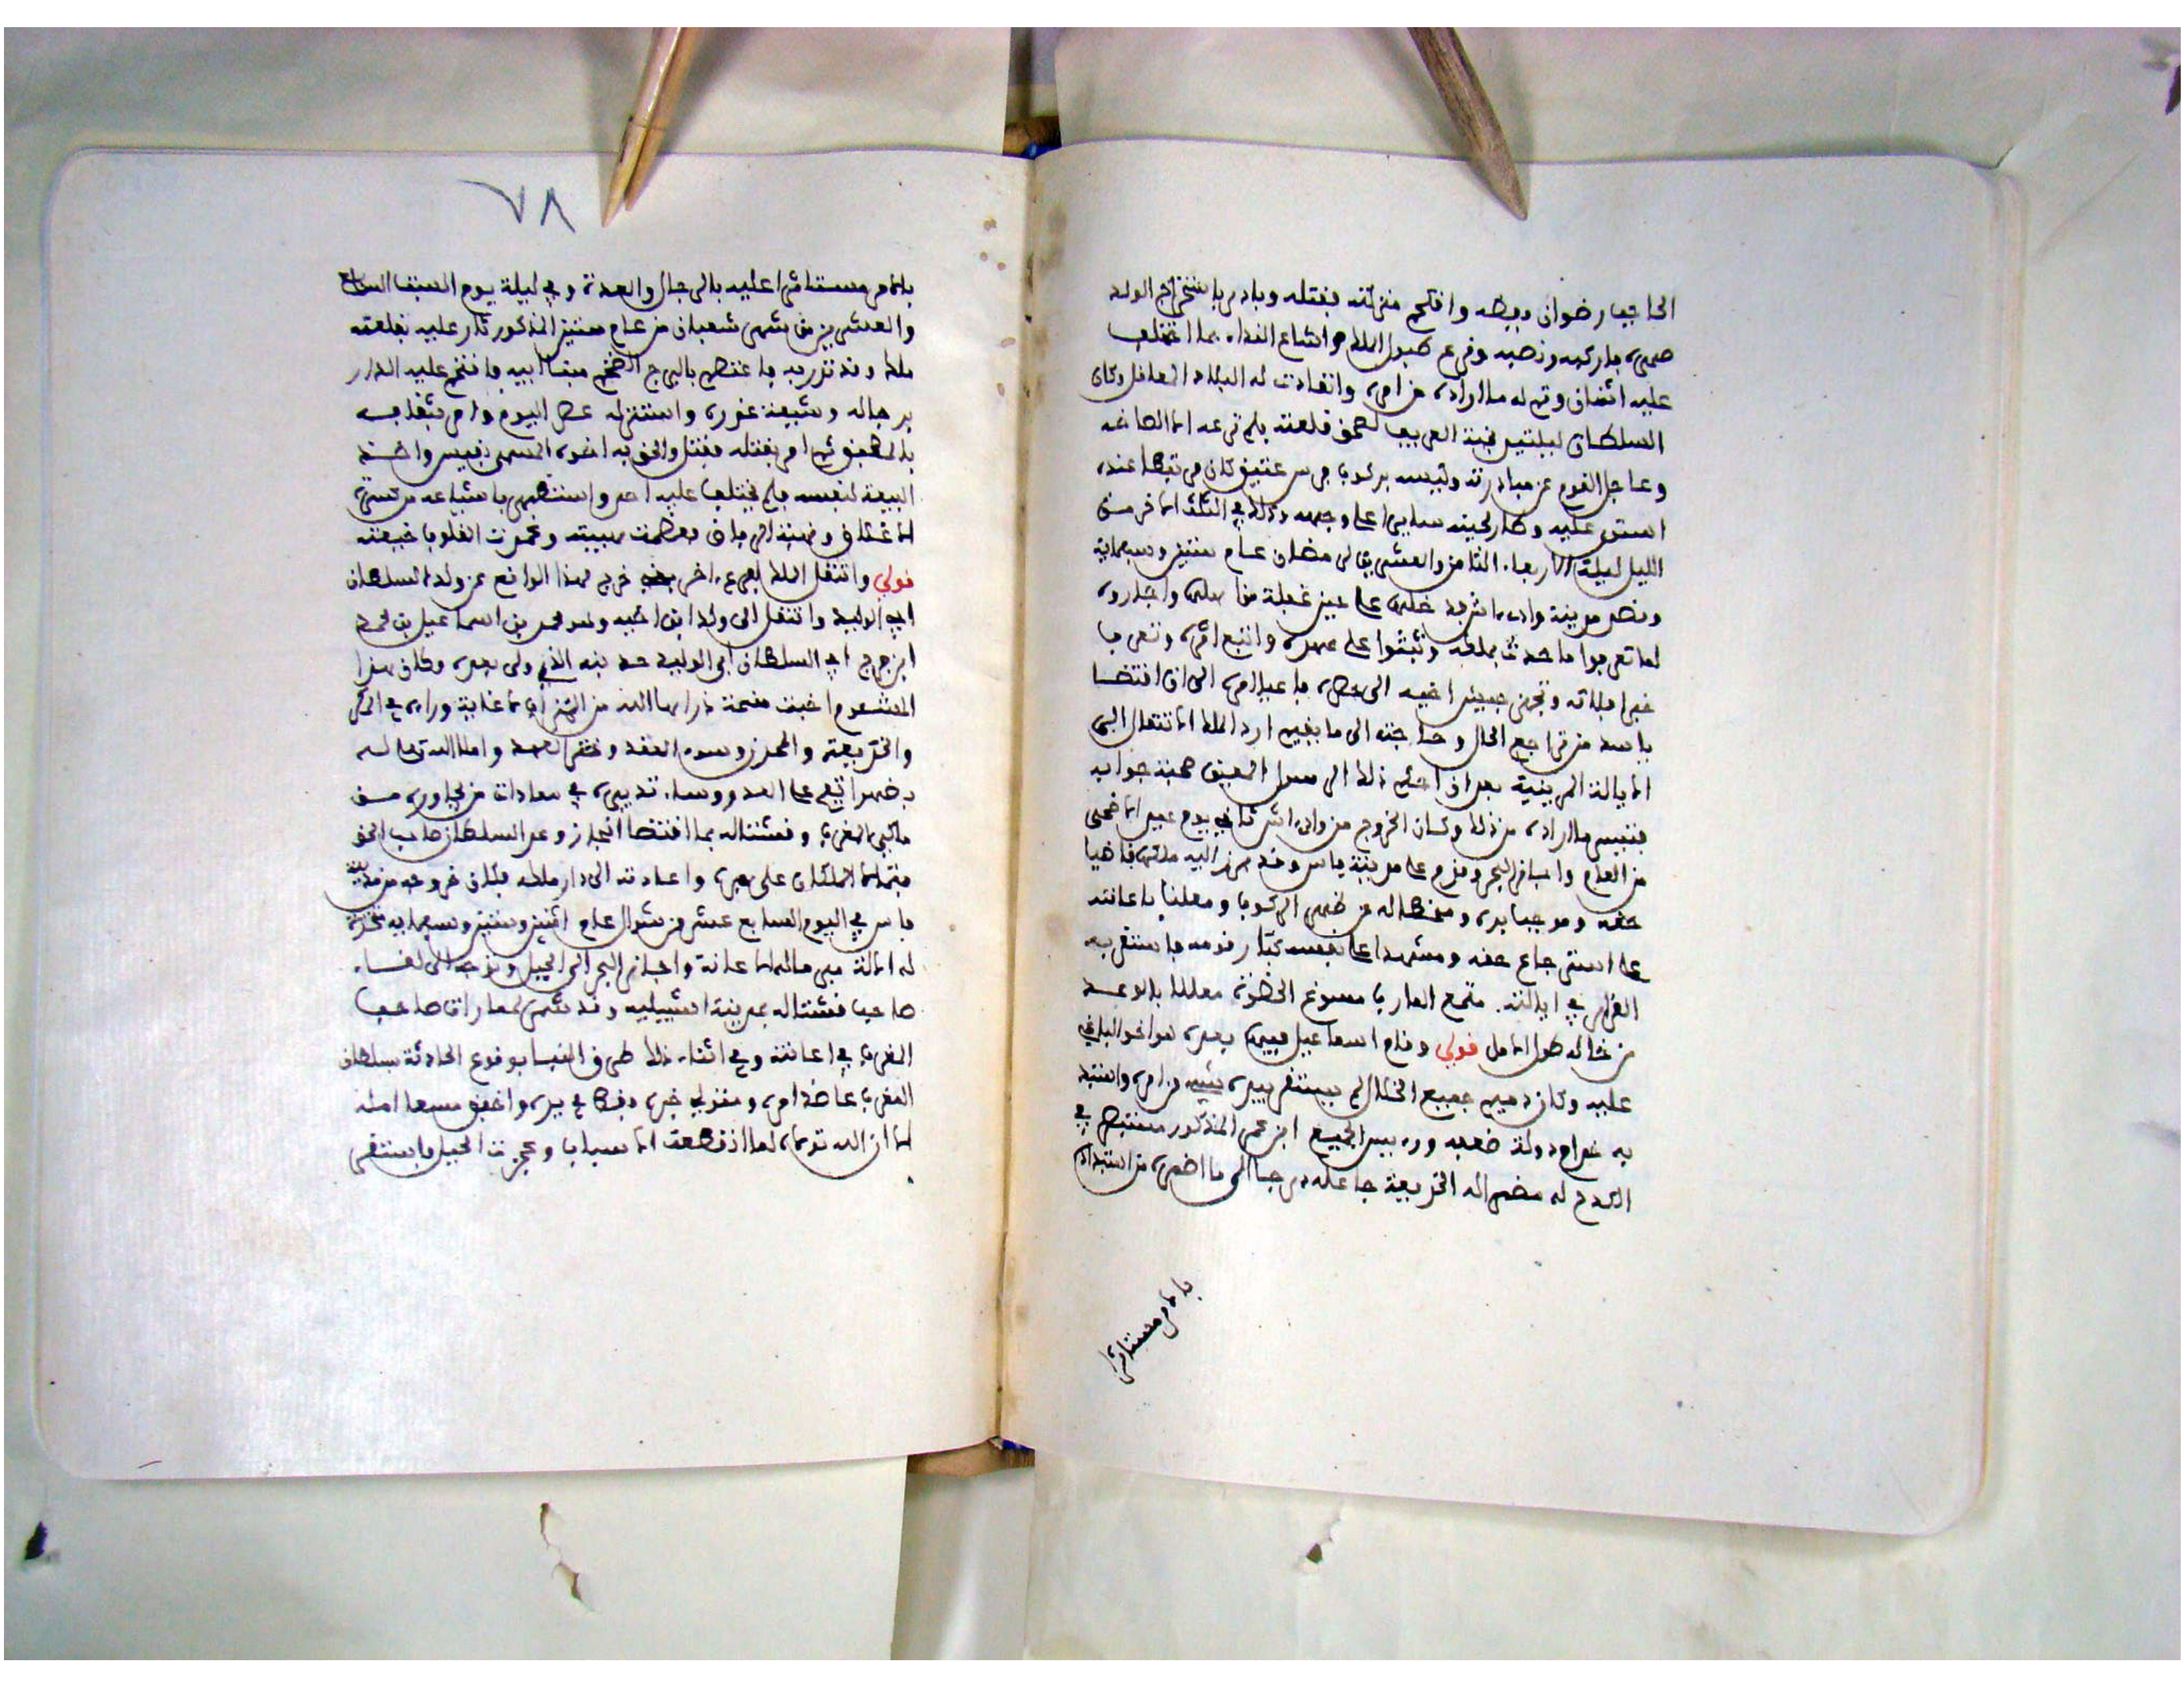 الحاجب رضوان ببطه واقتحم منزلته فقتله وبادر باستخراج الولد
صهره فاركبه ونصبه وقرع طبول الملك واشاع الفداء بما اختلف
عليه اثنان وتم له ما اراده من امره وانقادت له البلاد المعاقل وكان
السلطان ليلتين بجنة العريف لصق قلعته فلم ترعه الا الصاخة
وعاجل القوم عن مبادرته ولبسه بركوب فرس عتيق كان مرتبطا عنده
استوى عليه وطار لحينه سايرا على وجهه وذلك في الثلث الاخر من
الليل ليلة الاربعاء الثامن والعشرين لرمضان عام ستين وسبعماية
وقصر مدينة وادي اش فدخلها على حين غفلة من اهلها واجاروه
لما تعرفوا ما حدث بملكه وثبتوا على عهده واتبع اثره وتعرف
خبر افلاته وتجهز جيش اخيه الى حصره فاعيا امره الى ان اقتضا
ياسه من تراجع الحال وحاجته الى ما بغيره ارد الملك الانتقال الى
الايالة المرينية بعد ان احكم ذلك الرسول المعين صحبة جوابه
فتيسر ما اراده من ذلك وكان الخروج من وادي اش ثاني يوم عيد الاضحى
من العام واجاز البحر وقدم على مدينة فاس وقد برز اليه ملكها قاضيا
حقه وموجبا بره ومنحطا له عن ظهر الركوب ومعلنا باعانته
على استرجاع حقه ومشهدا على نفسه كبار قومه فاستقر به
القرار في ايالته متمع المارب مسوغ الحظوة معللا بالوعد
من خاله طول الامل فولي وقام اسماعيل فيها بعده هو اخو البلرغي
عليه وكان دميم جميع الخلال لم يستقر بيده شيء من امره واستبد
به غرام دولة ضعبه ورءيس الجميع ابن عمر المذكور مستبصر في
الكدح له مضمر اله الخديعة جاعله درجا الى ما اضمره من استبداده
بالامر مستاثرا
٧٨
بالامر مستاثرا عليه بالرجال والعدة وفي ليلة يوم السبت السابع
والعشرين من شهر شعبان من عام ستين المذكور ثار عليه بقلعته
ملك وقد نذر به فاعتصم بالبرج الضخم مبنا ابيه فافتتح عليه الدار
برجاله وشيعة غدره واستنزله عصر اليوم وامر بثقابه
بالمطبق ثم امر بقتله فقتل والحق به اخوه المسمى بقيس واخذ
البيعة لنفسه فلم يختلف عليه احد واستظهر باشياعه من ستة
الاغتلاق وضبنة الرجان فعظمت هيبته وعمرت القلوب خيفته
فولي وانتقل الملك لفرع اخر خرج لهذا الواقع عن ولد السلطان
ابي الوليد وانتقل الى ولد ابن اخيه وهو محمد بن اسماعيل بن محمد
ابن فرج ابي السلطان ابي الوليد حد بنه الذي ولى بعده وكان هذا
المشئوم اخبث منحة ذراها الله من الشر الى ما غاية وراءه في المكر
والخديعة والمحرز وسوء العقد وخفر العهد واملا الله تعالى له
برضه واتبعه على العدو وساء تدبيره في معادات من يجاوره من
مالكي المغرب وقشتاله بما اقتضا انجاز وعد السلطان صاحب الحق
مبتدا الاملاك على بره واعادته الى دار ملكه فكان خروجه من مدينة
فاس في اليوم السابع عشر من شوال عام اثنين وستين وسبعمايه
له ايالة مرماله الاعانة واجاز البحر الى الجبل وتوجه الى لقاء
صاحب قشتاله بمدينة اشبيليه وقد شمر لمعارات صاحب
المغرب في اعانته وفي اثناء ذلك طرف النبا بوقوع الحادثة بسلطان
المغرب عاضد امره ومتولي خبره وبط في يده واخفق سعد امله
لما ان الله تولاه لما انقطعت الاسباب وعجزت الحيل فاستقر